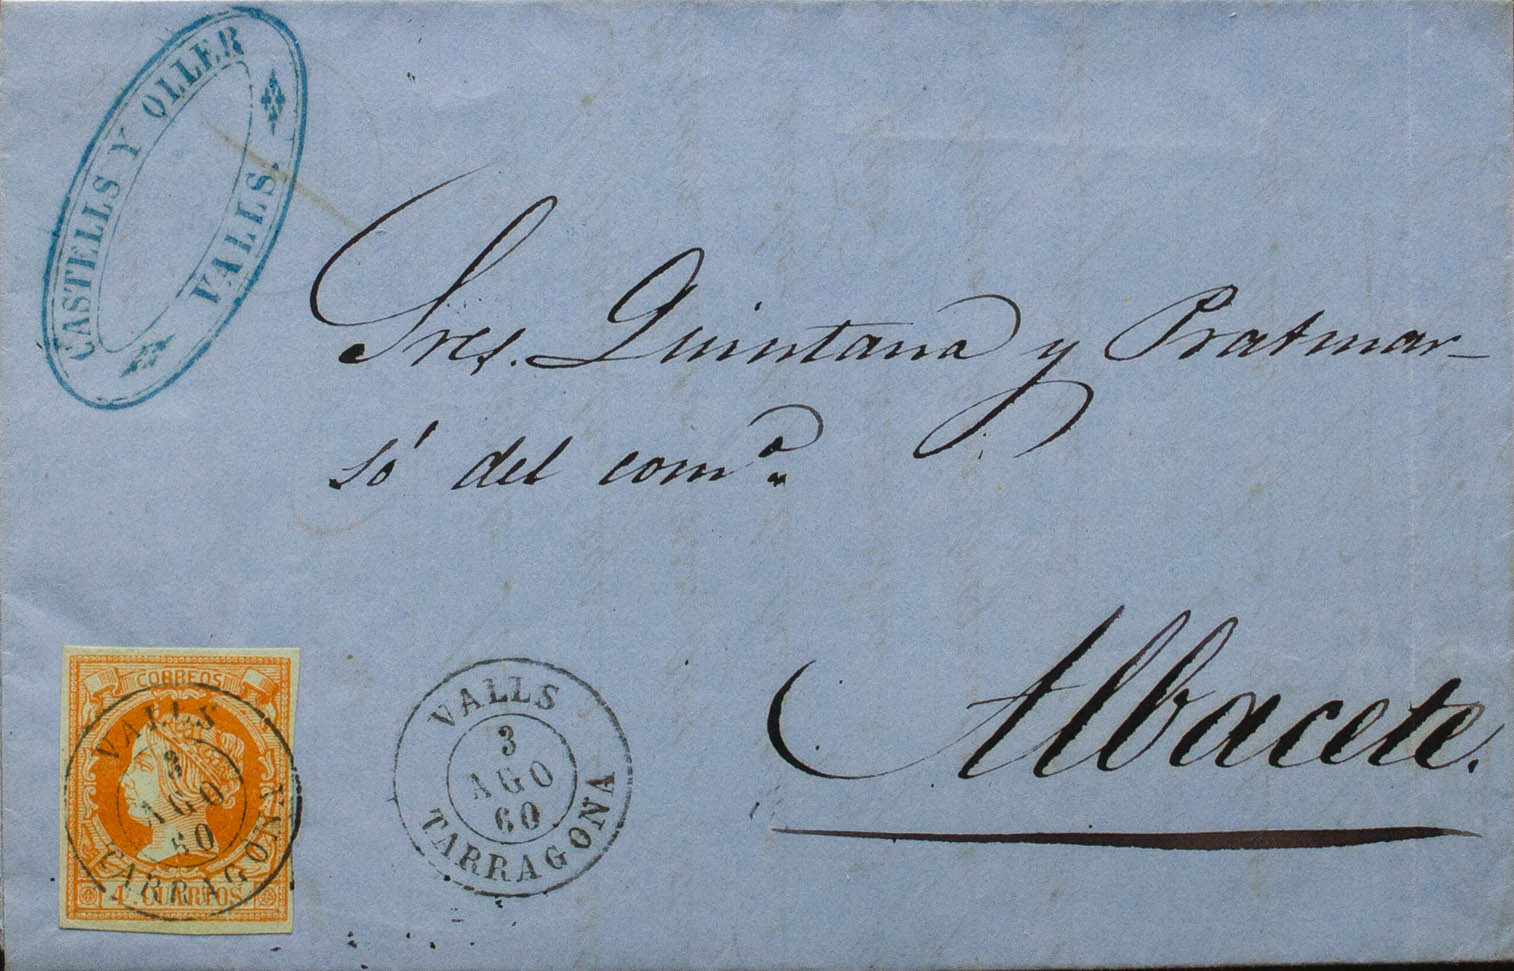 CASTELLS Y OLLER
VALLS.
Sres. Quintana y Pratmar-
só del comº.
Albacete.
CORREOS
4 CUARTOS
VALLS
3
AGO
60
TARRAGONA
VALLS
3
AGO
60
TARRAGONA